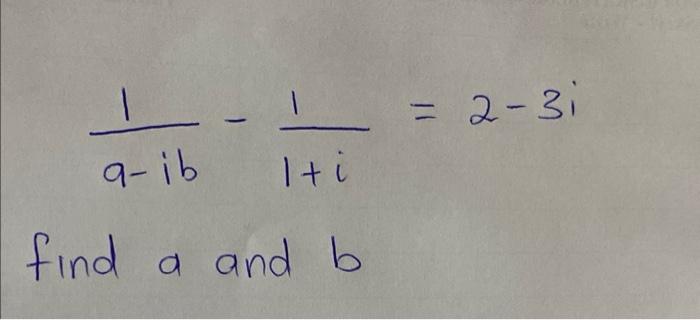 1/(a-ib) - 1/(1+i) = 2-3i
find a and b